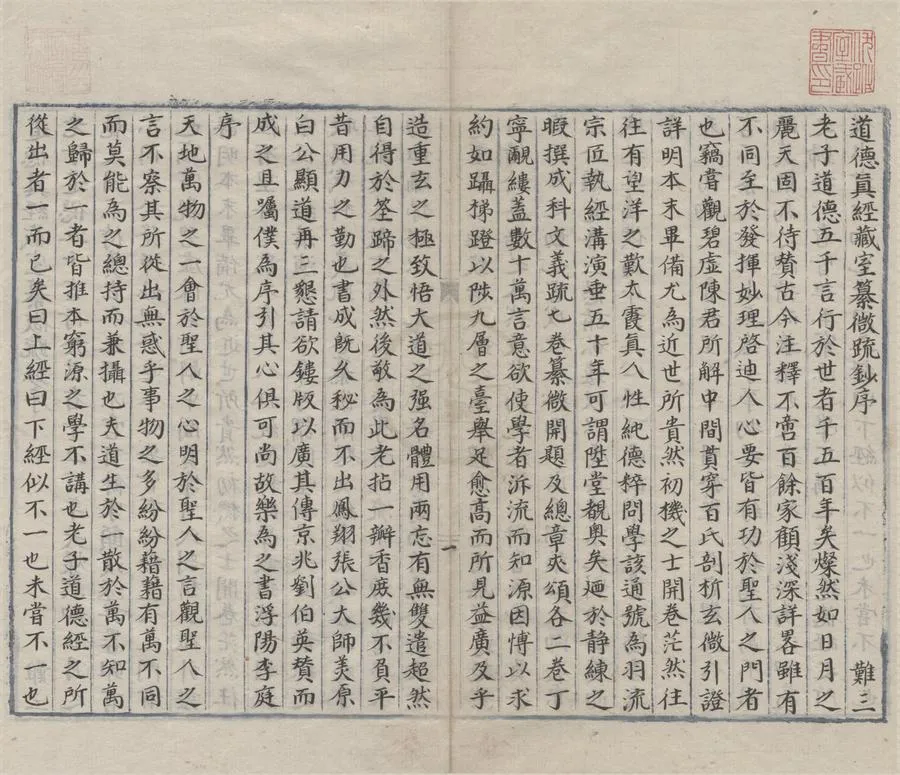 道德眞經藏室纂微疏鈔序 難三
老子道德五千言行於世者千五百年矣燦然如日月之
麗天固不待賛古今注釋不啻百餘家顧淺深詳畧雖有
不同至於發揮妙理啓迪人心要皆有功於聖人之門者
也竊嘗觀碧虛陳君所解中間貫穿百氏剖析玄微引證
詳明本末畢備尤為近世所貴然初機之士開卷茫然往
往有望洋之歎太霞眞人性純德粹問學該通號為羽流
宗匠執經溝演垂五十年可謂陞堂覩奧矣廼於靜練之
暇撰成科文義疏七卷纂微開題及總章夾頌各二卷丁
寧覼縷蓋數十萬言意欲使學者泝流而知源因博以求
約如躡梯蹬以陟九層之臺舉足愈高而所見益廣及乎
造重玄之極致悟大道之强名體用兩忘有無雙遣超然
自得於筌蹄之外然後敢為此老拈一瓣香庶幾不負平
昔用力之勤也書成旣久秘而不出鳳翔張公大師美原
白公顯道再三懇請欲鏤版以廣其傳京兆劉伯英賛而
成之且囑僕為序引其心俱可尚故樂為之書浮陽李庭
序
天地萬物之一會於聖人之心明於聖人之言觀聖人之
言不察其所從出無惑乎事物之多紛紛藉藉有萬不同
而莫能為之總持而兼攝也夫道生於一散於萬不知萬
之歸於一者皆推本窮源之學不講也老子道德經之所
從出者一而已矣曰上經曰下經似不一也未嘗不一也